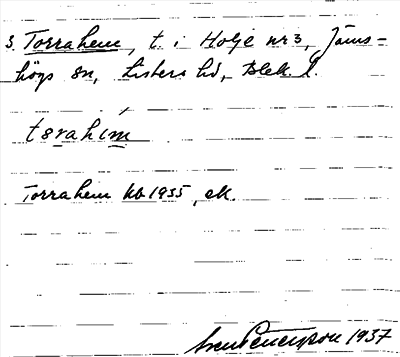 3. Torrahem, t. i Holje nr 3, Jäms-
högs sn, Listers hd, Blek. l.
tɵrahím
Torrahem kb 1935, ek.
1937